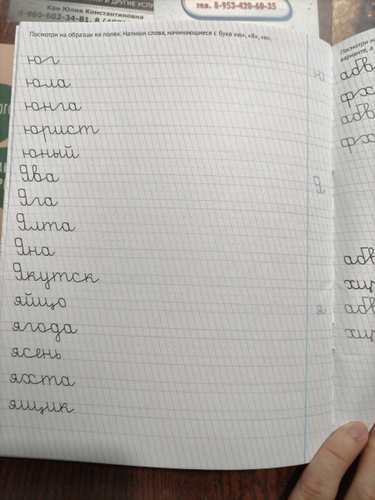 И ДРУГИЕ УСЛУ
Кан Юлия Константиновна
8-960-602-34-81, 8
тел. 8-953-420-60-35
Посмотри на образцы на полях. Напиши слова, начинающиеся с букв «ю», «Я», «я».
юг
юла
юнга
юрист
юный
Ява
Яга
Ялта
Яна
Якутск
яйцо
ягода
ясень
яхта
ящик
ю
Я
я
Посмотри н
абв
абв
абв
абв